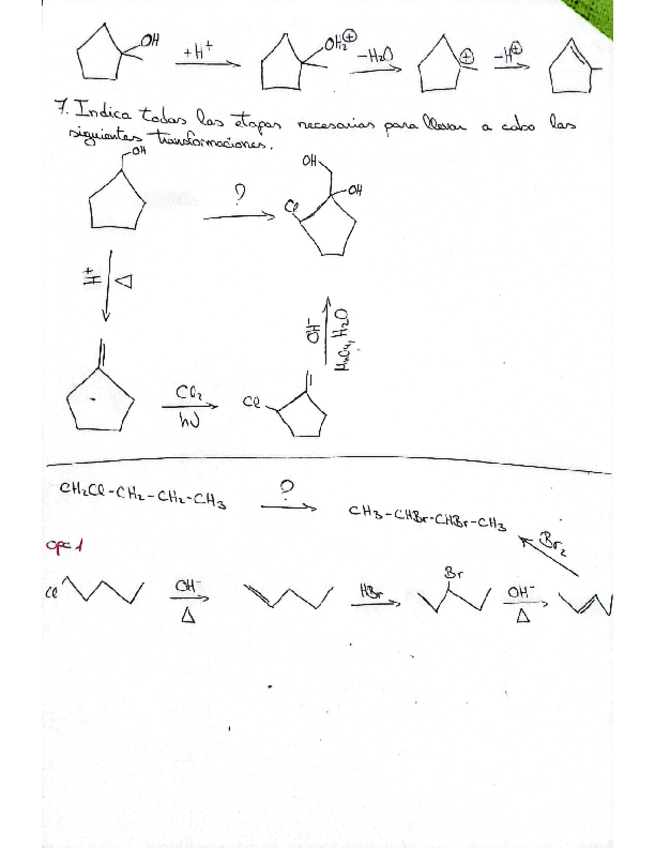 OH +H⁺ OH₂⊕ -H₂O ⊕ -H⊕
7. Indica todas las etapas necesarias para llevar a cabo las
siguientes transformaciones.
OH ? OH OH Cl
H⁺ Δ
OH⁻ MnO₄, H₂O
Cl₂ hν Cl
CH₂Cl-CH₂-CH₂-CH₃ ? CH₃-CHBr-CHBr-CH₃
opc 1 Br₂
Cl OH⁻ Δ HBr Br OH⁻ Δ